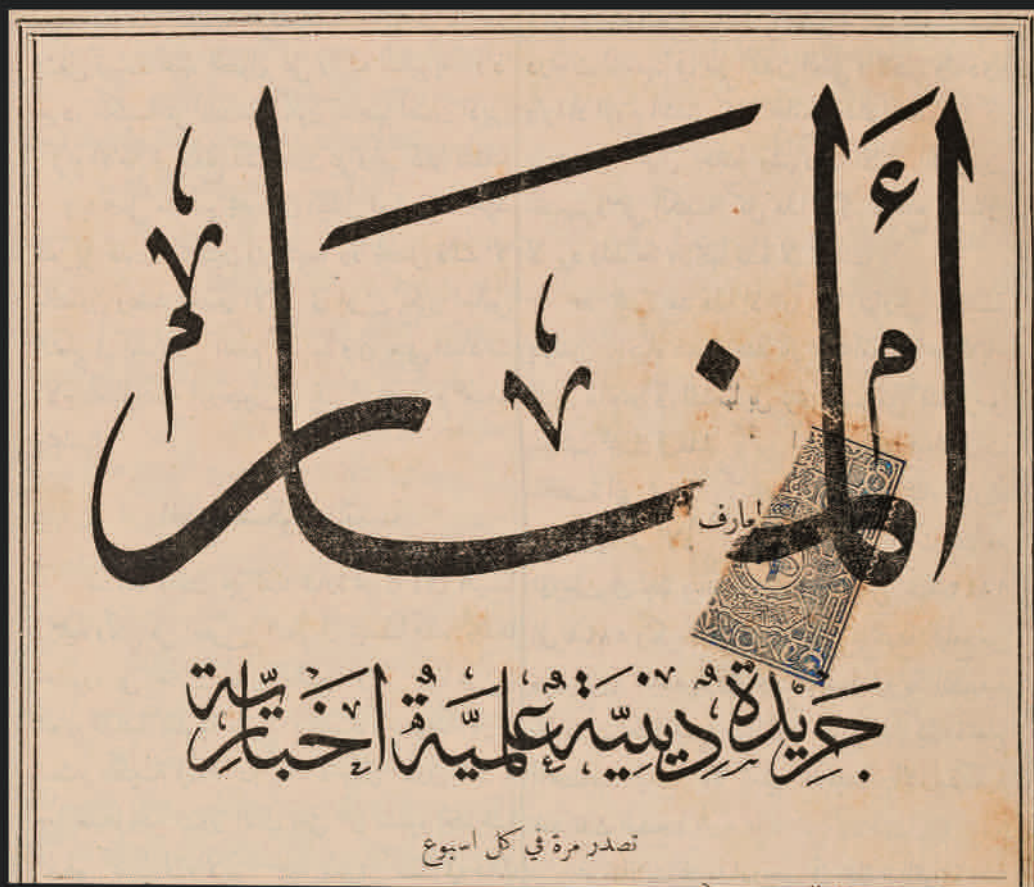 أَلمنار
جَرِيدَةٌ دِينِيَّةٌ عِلميَّةٌ اخبَارِيَّة
تصدر مرة في كل اسبوع